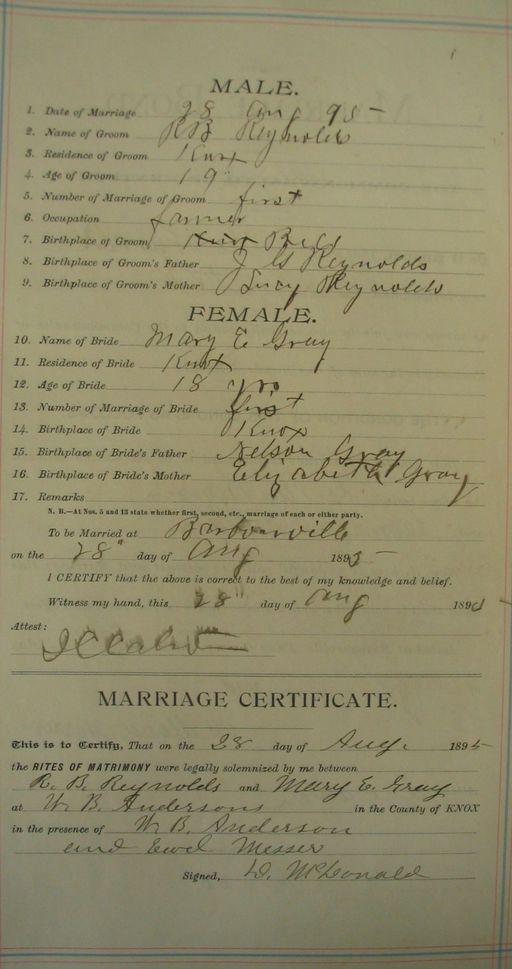 MALE.
1. Date of Marriage 28 Aug 95
2. Name of Groom R B Reynolds
3. Residence of Groom Knox
4. Age of Groom 19
5. Number of Marriage of Groom first
6. Occupation farmer
7. Birthplace of Groom Knox Bell
8. Birthplace of Groom's Father J G Reynolds
9. Birthplace of Groom's Mother Lucy Reynolds
FEMALE.
10. Name of Bride Mary E Gray
11. Residence of Bride Knox
12. Age of Bride 18 yrs
13. Number of Marriage of Bride first
14. Birthplace of Bride Knox
15. Birthplace of Bride's Father Nelson Gray
16. Birthplace of Bride's Mother Elizabeth Gray
17. Remarks
N. B.—At Nos. 5 and 13 state whether first, second, etc., marriage of each or either party.
To be Married at Barbourville
on the 28" day of Aug 1895
I CERTIFY that the above is correct to the best of my knowledge and belief.
Witness my hand, this 28" day of Aug 189
Attest:
MARRIAGE CERTIFICATE.
This is to Certify, That on the 28 day of Aug. 1895
the RITES OF MATRIMONY were legally solemnized by me between
R. B. Reynolds and Mary E. Gray
at W. B. Andersons in the County of KNOX
in the presence of W. B. Anderson
and Messer
Signed, W. McDonald